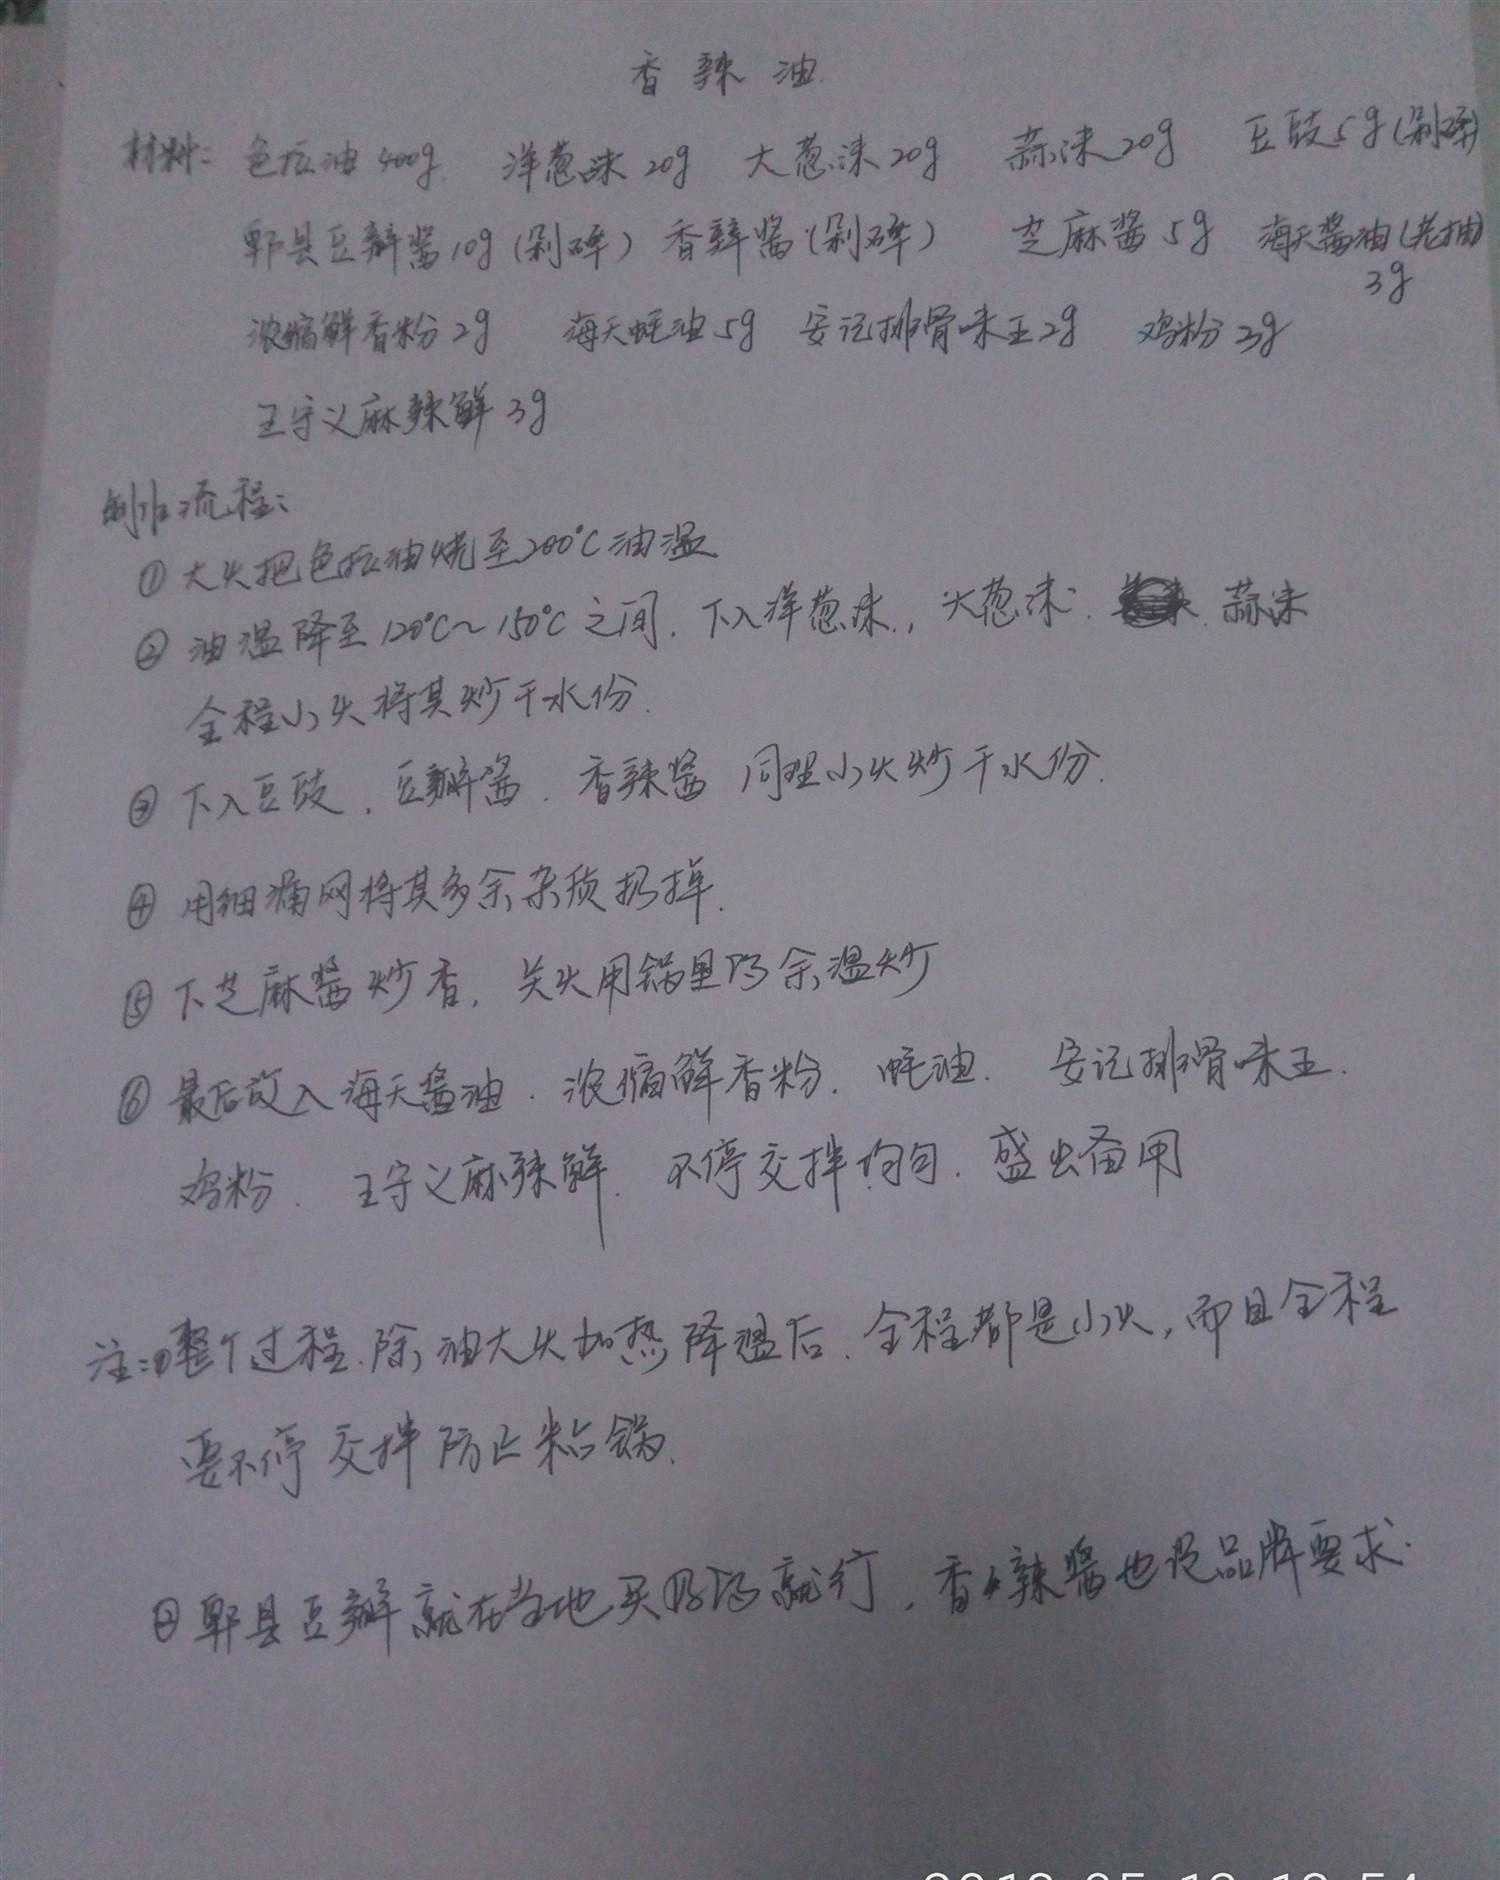 香辣油
材料: 色拉油400g 洋葱沫20g 大葱沫20g 蒜沫20g 豆豉5g(剁碎)
郫县豆瓣酱10g(剁碎) 香辣酱(剁碎) 芝麻酱5g 海天酱油(老抽)
3g
浓缩鲜香粉2g 海天蚝油5g 安记排骨味王2g 鸡粉3g
王守义麻辣鲜3g
制作流程:
① 大火把色拉油烧至200℃油温
② 油温降至120℃~150℃之间.下入洋葱沫.,大葱沫.蒜沫
全程小火将其炒干水份.
③ 下入豆豉.豆瓣酱.香辣酱 同理小火炒干水份.
④ 用细漏网将其多余杂质扔掉.
⑤ 下芝麻酱炒香,关火用锅里的余温炒
⑥ 最后放入海天酱油.浓缩鲜香粉.蚝油.安记排骨味王.
鸡粉.王守义麻辣鲜.不停交拌均匀.盛出备用
注:①整个过程.除油大火加热降温后.全程都是小火,而且全程
要不停交拌防止粘锅.
② 郫县豆瓣就在当地买的就行,香辣酱也没品牌要求.